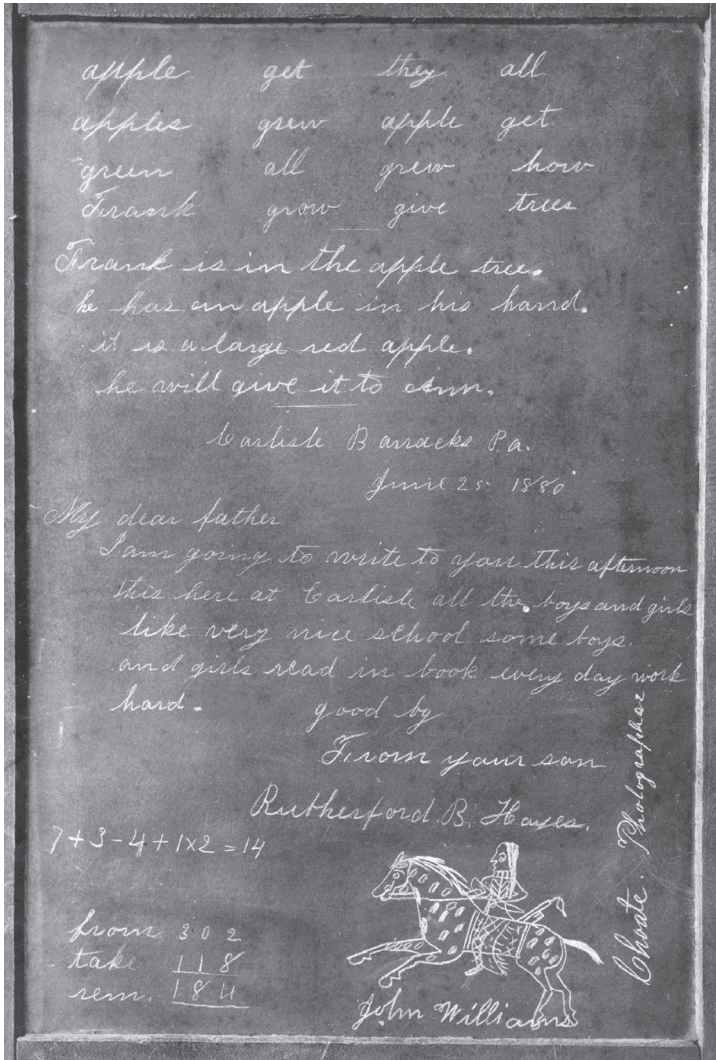 apple get they all
apples grew apple get
green all grew how
Frank grow give trees
Frank is in the apple tree.
he has an apple in his hand.
it is a large red apple.
he will give it to Ann.
Carlisle Barracks Pa.
June 25 1880
My dear father
I am going to write to you this afternoon
this here at Carlisle all the boys and girls
like very nice school some boys.
and girls read in book every day work
hard.
good by
From your son
Rutherford B. Hayes.
7+3-4+1x2=14
from 302
take 118
rem. 184
John Williams
Choate. Photographer